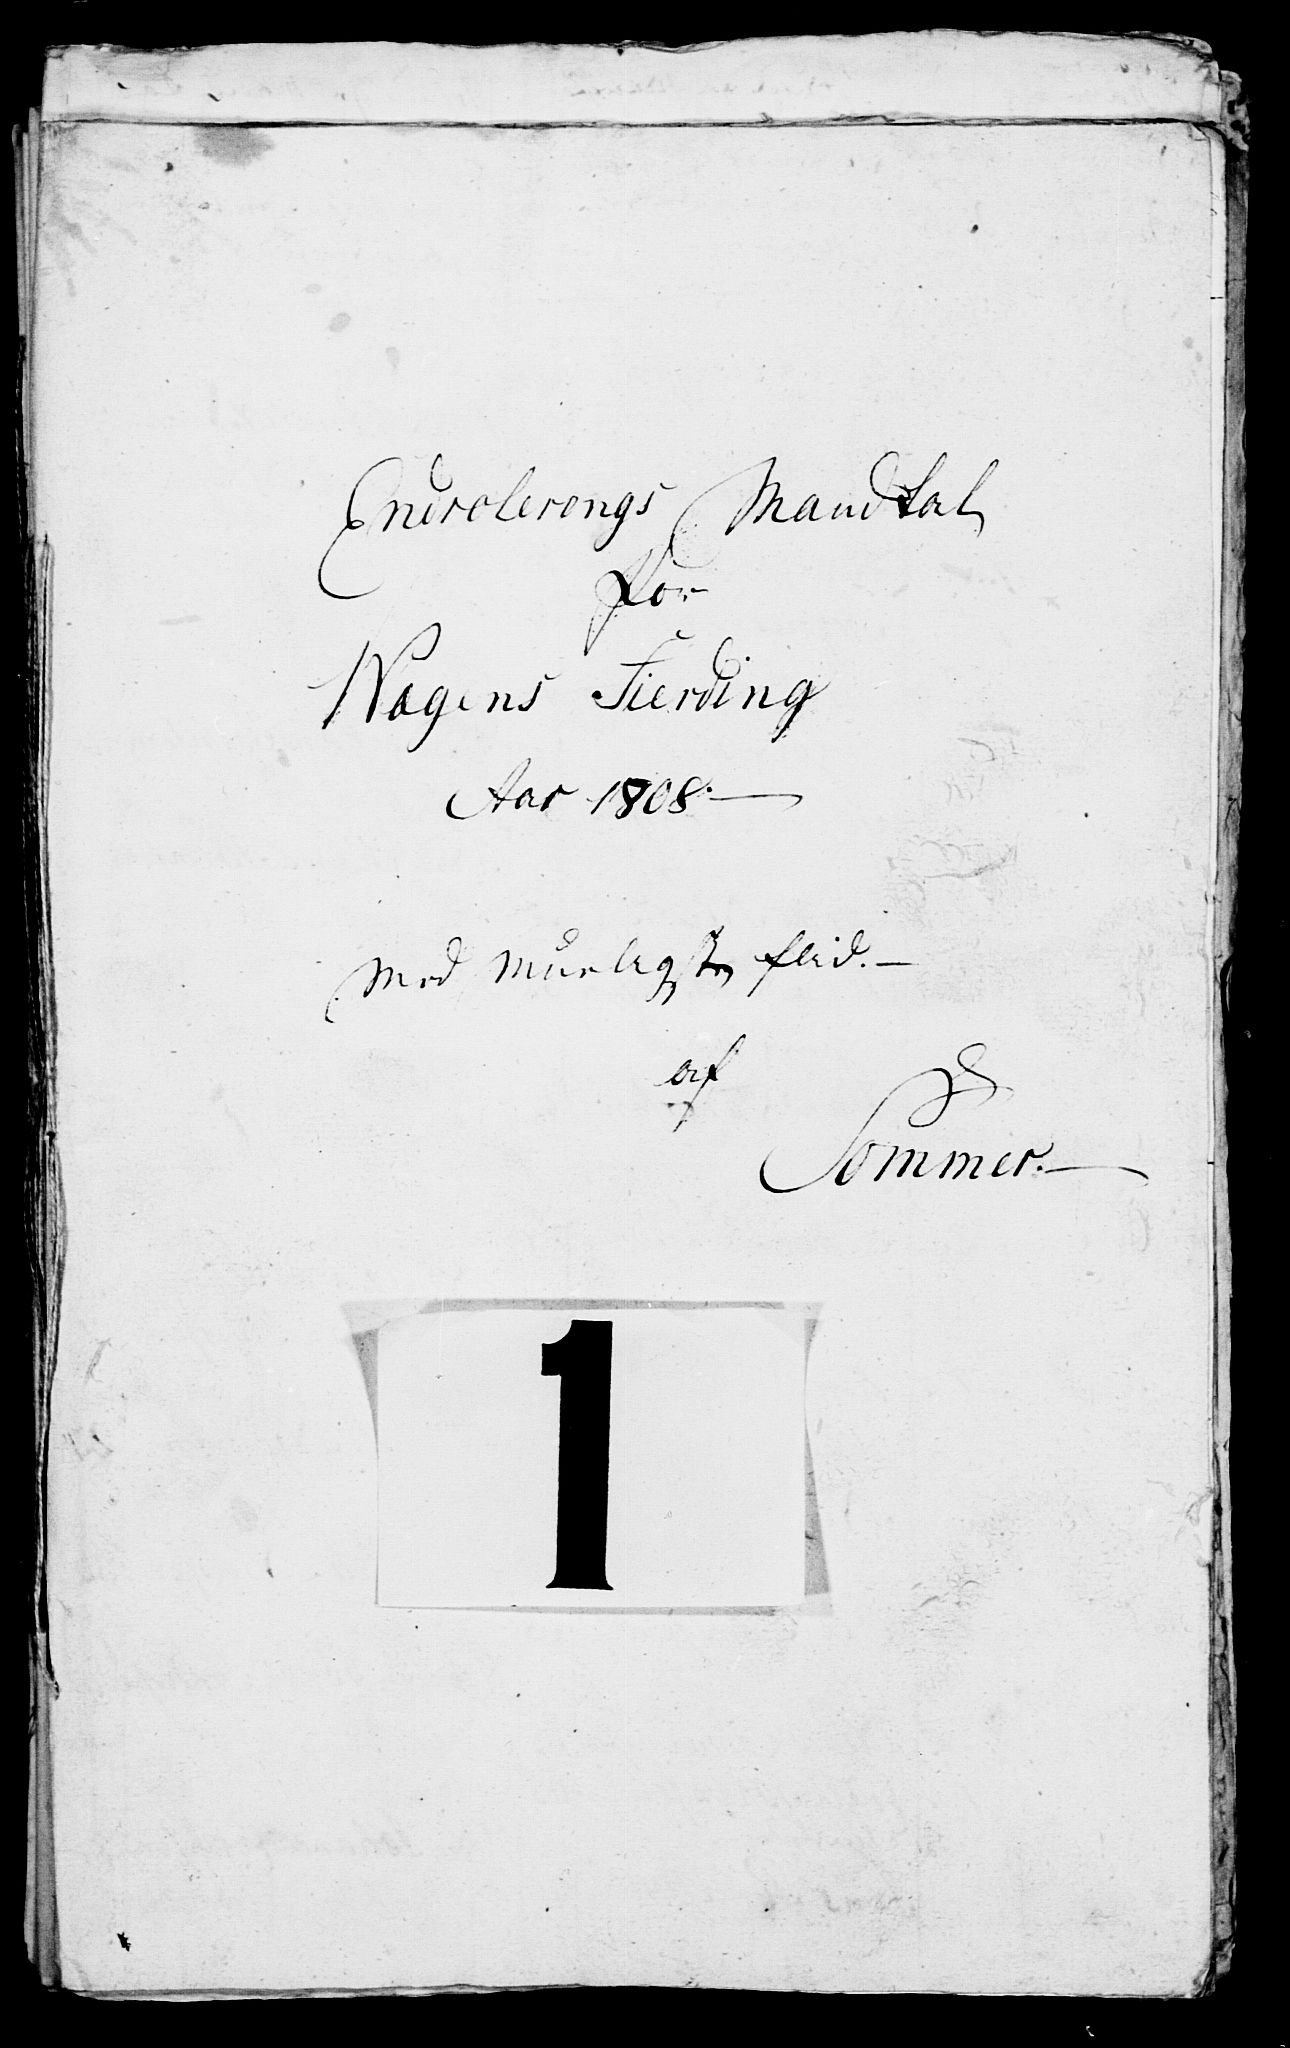 Enrolerengs Mandtal
for
Wogens Fierding
Aar 1808.
med Mueligste flid.
af
Sommer.
1